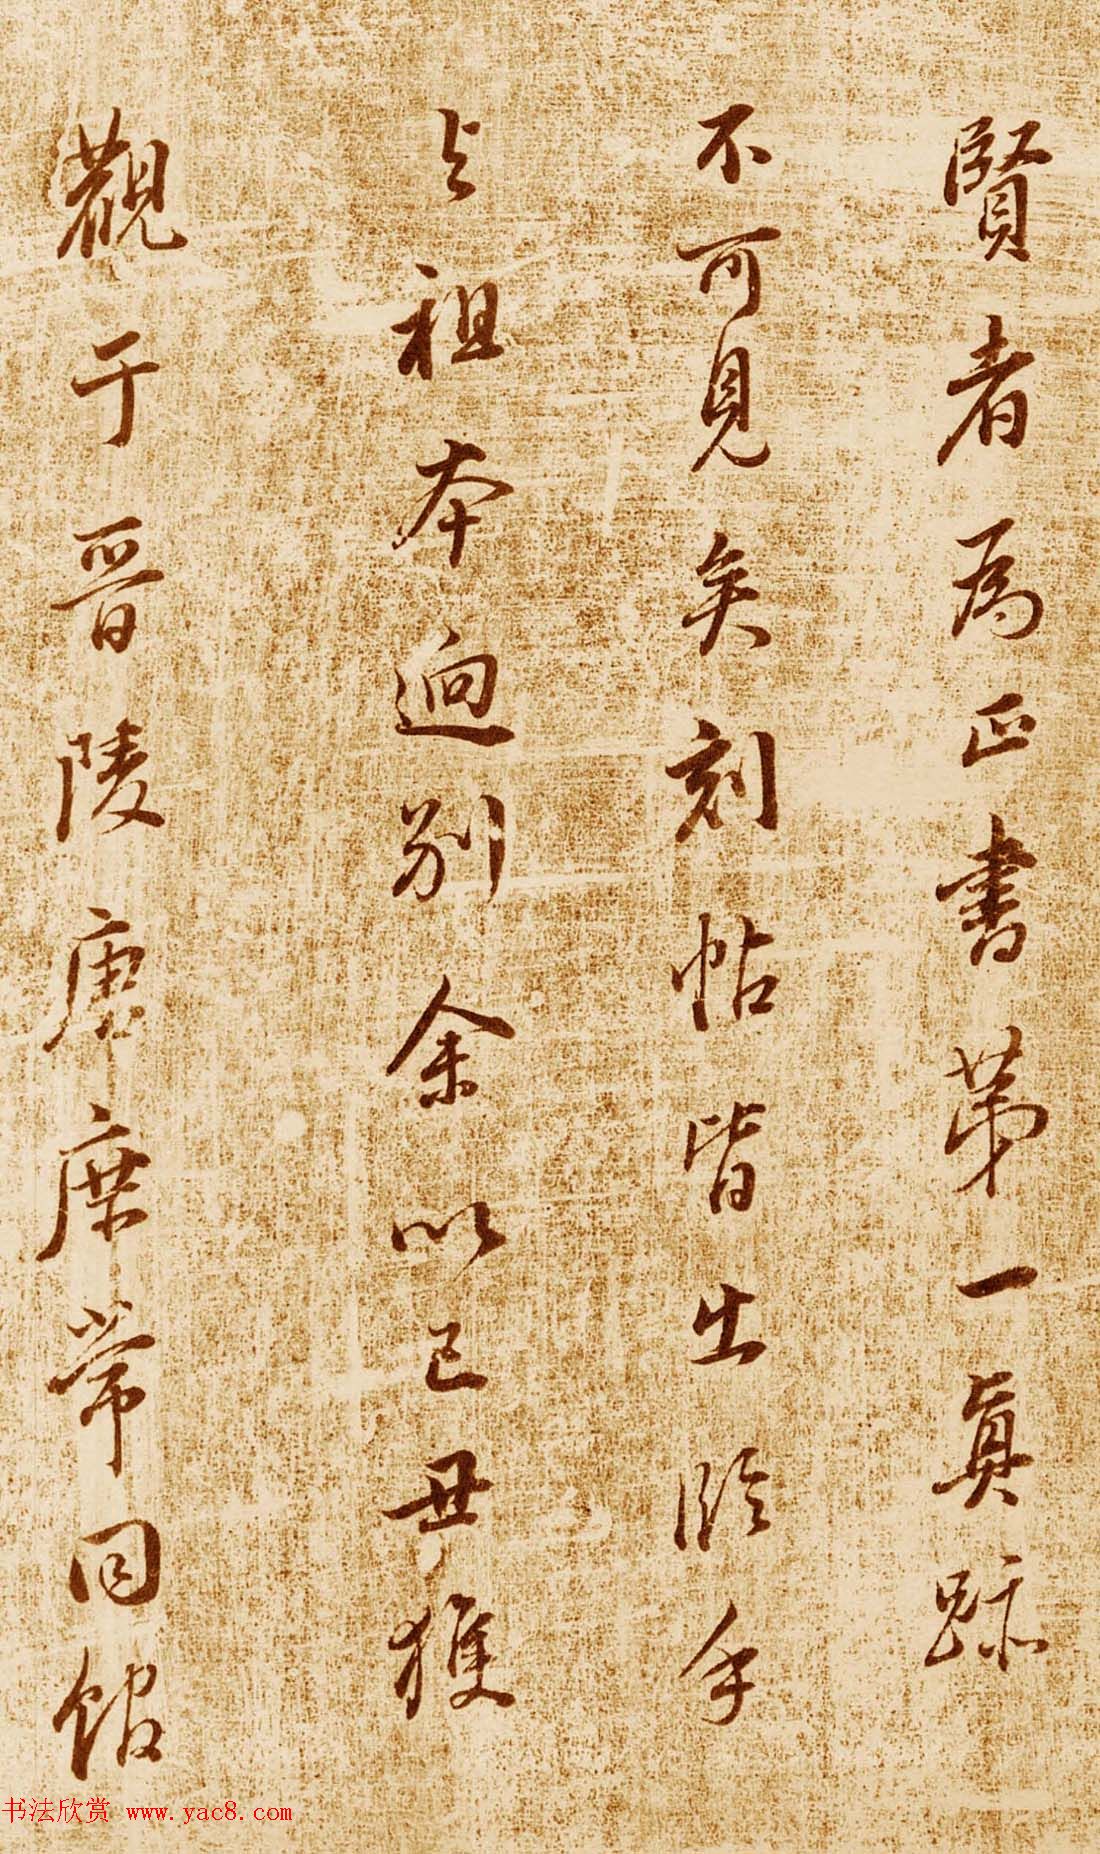 賢者為正書第一真跡
不可見矣刻帖皆出臨手
與祖本迥別余以己丑獲
觀于晉陵唐庶常同館
书法欣赏 www.yac8.com